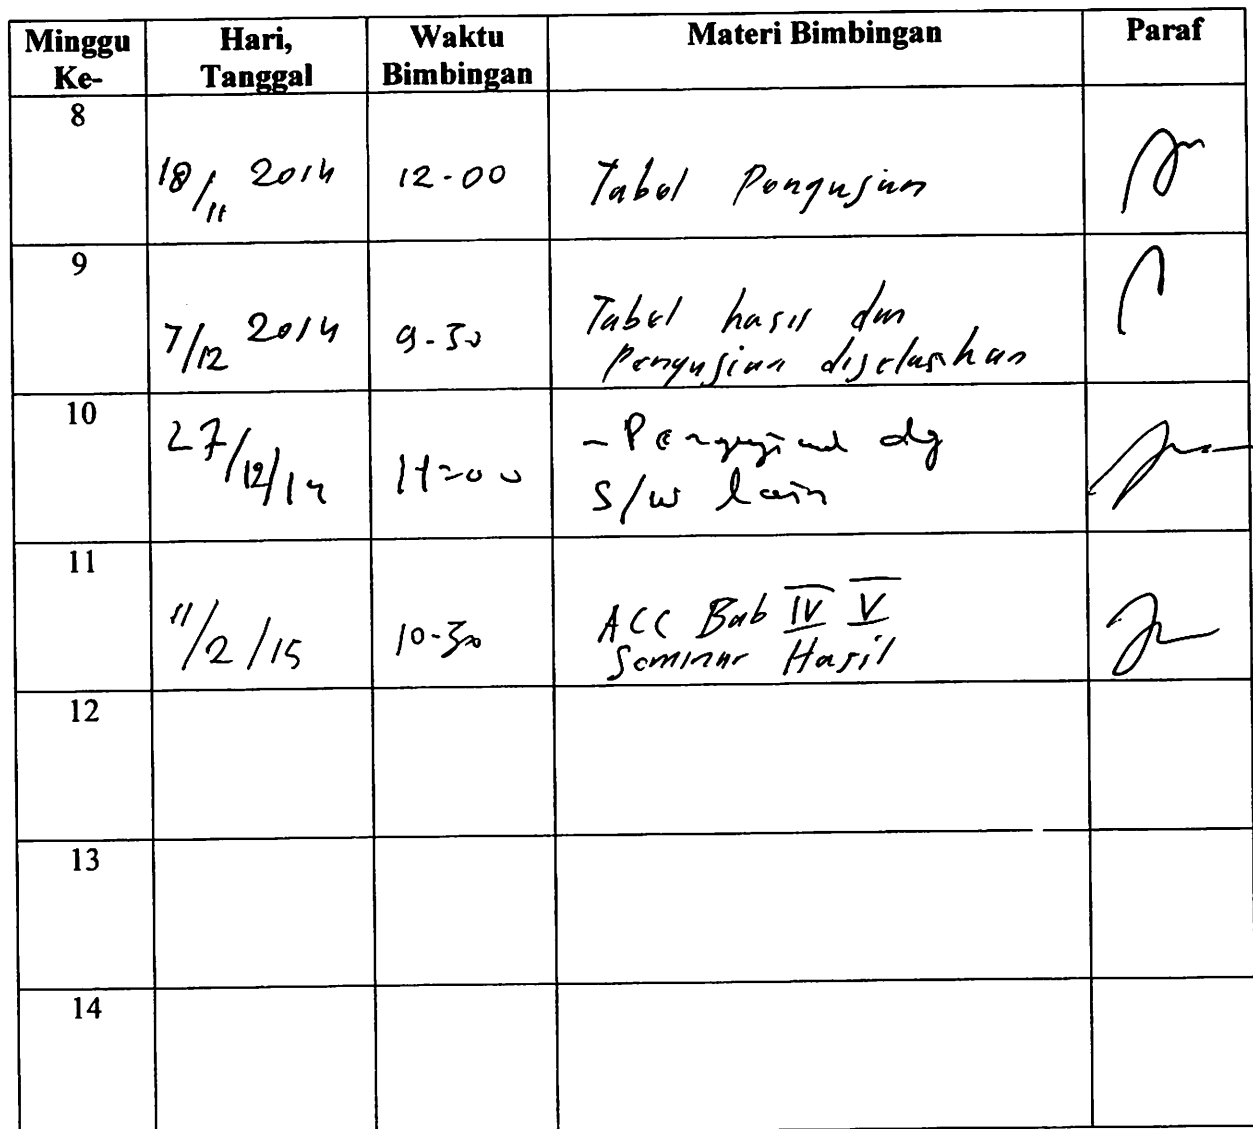 Minggu Ke-
Hari, Tanggal
Waktu Bimbingan
Materi Bimbingan
Paraf
8
18/11 2014
12-00
Tabel Pengujian
9
7/12 2014
9-30
Tabel hasil dan
pengujian dijelaskan
10
27/12/14
- Pengujian dg
S/w lain
11
11/2/15
10-30
ACC Bab IV V
Seminar Hasil
12
13
14